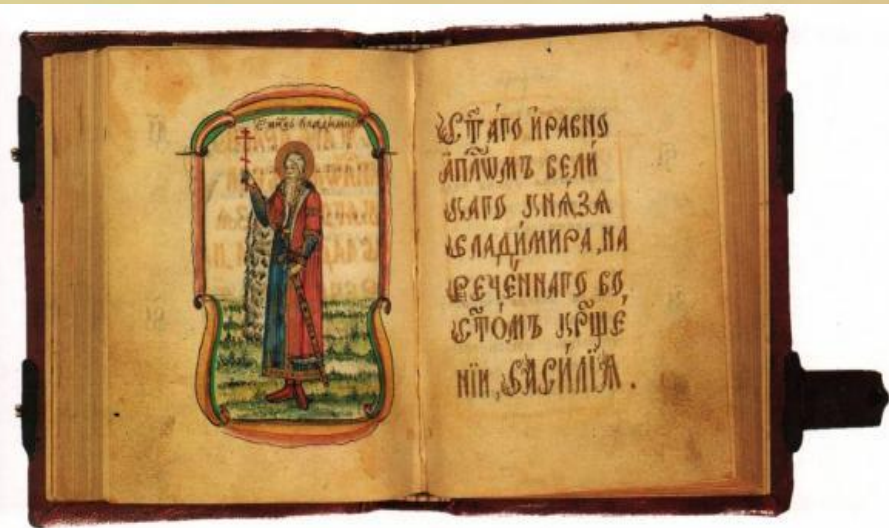 Владимиръ
СТ҃А́ГО И҆РАВНО
А҆ПЛ҃ѠМЪ ВЕЛИ́
КАГО КНѦ́ЗѦ
ВЛАДИ́МИРА, НА
РЕЧЕ́ННАГО ВО,
СТ҃О́МЪ КР҃ЩЕ́
НЇИ, ВАСИ́ЛЇѦ .